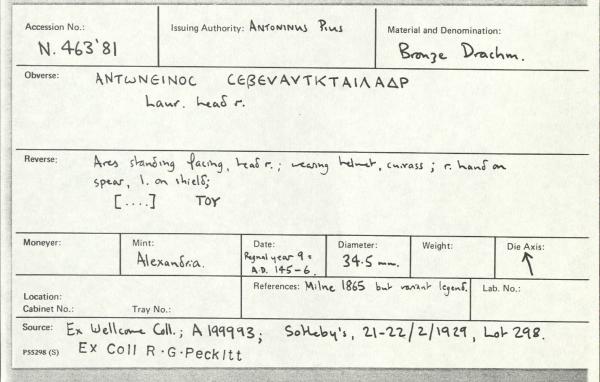 Accession No.: N. 463'81
Issuing Authority: Antoninus Pius
Material and Denomination: Bronze Drachm.
Obverse: ΑΝΤωΝΕΙΝΟC CΕΒΕVΑVΤΚΤΑΙΛΑΔΡ
Laur. head r.
Reverse: Ares standing facing, head r.; wearing helmet, cuirass; r. hand on
spear, l. on shield;
[....] ΤΟΥ
Moneyer:
Mint: Alexandria.
Date: Regnal year 9 = A.D. 145-6.
Diameter: 34.5 mm.
Weight:
Die Axis: ↑
Location:
Cabinet No.: Tray No.:
References: Milne 1865 but variant legend.
Lab. No.:
Source: Ex Wellcome Coll.; A 199993; Sotheby's, 21-22/2/1929, Lot 298.
PS5298 (S) Ex Coll R.G.Peckitt